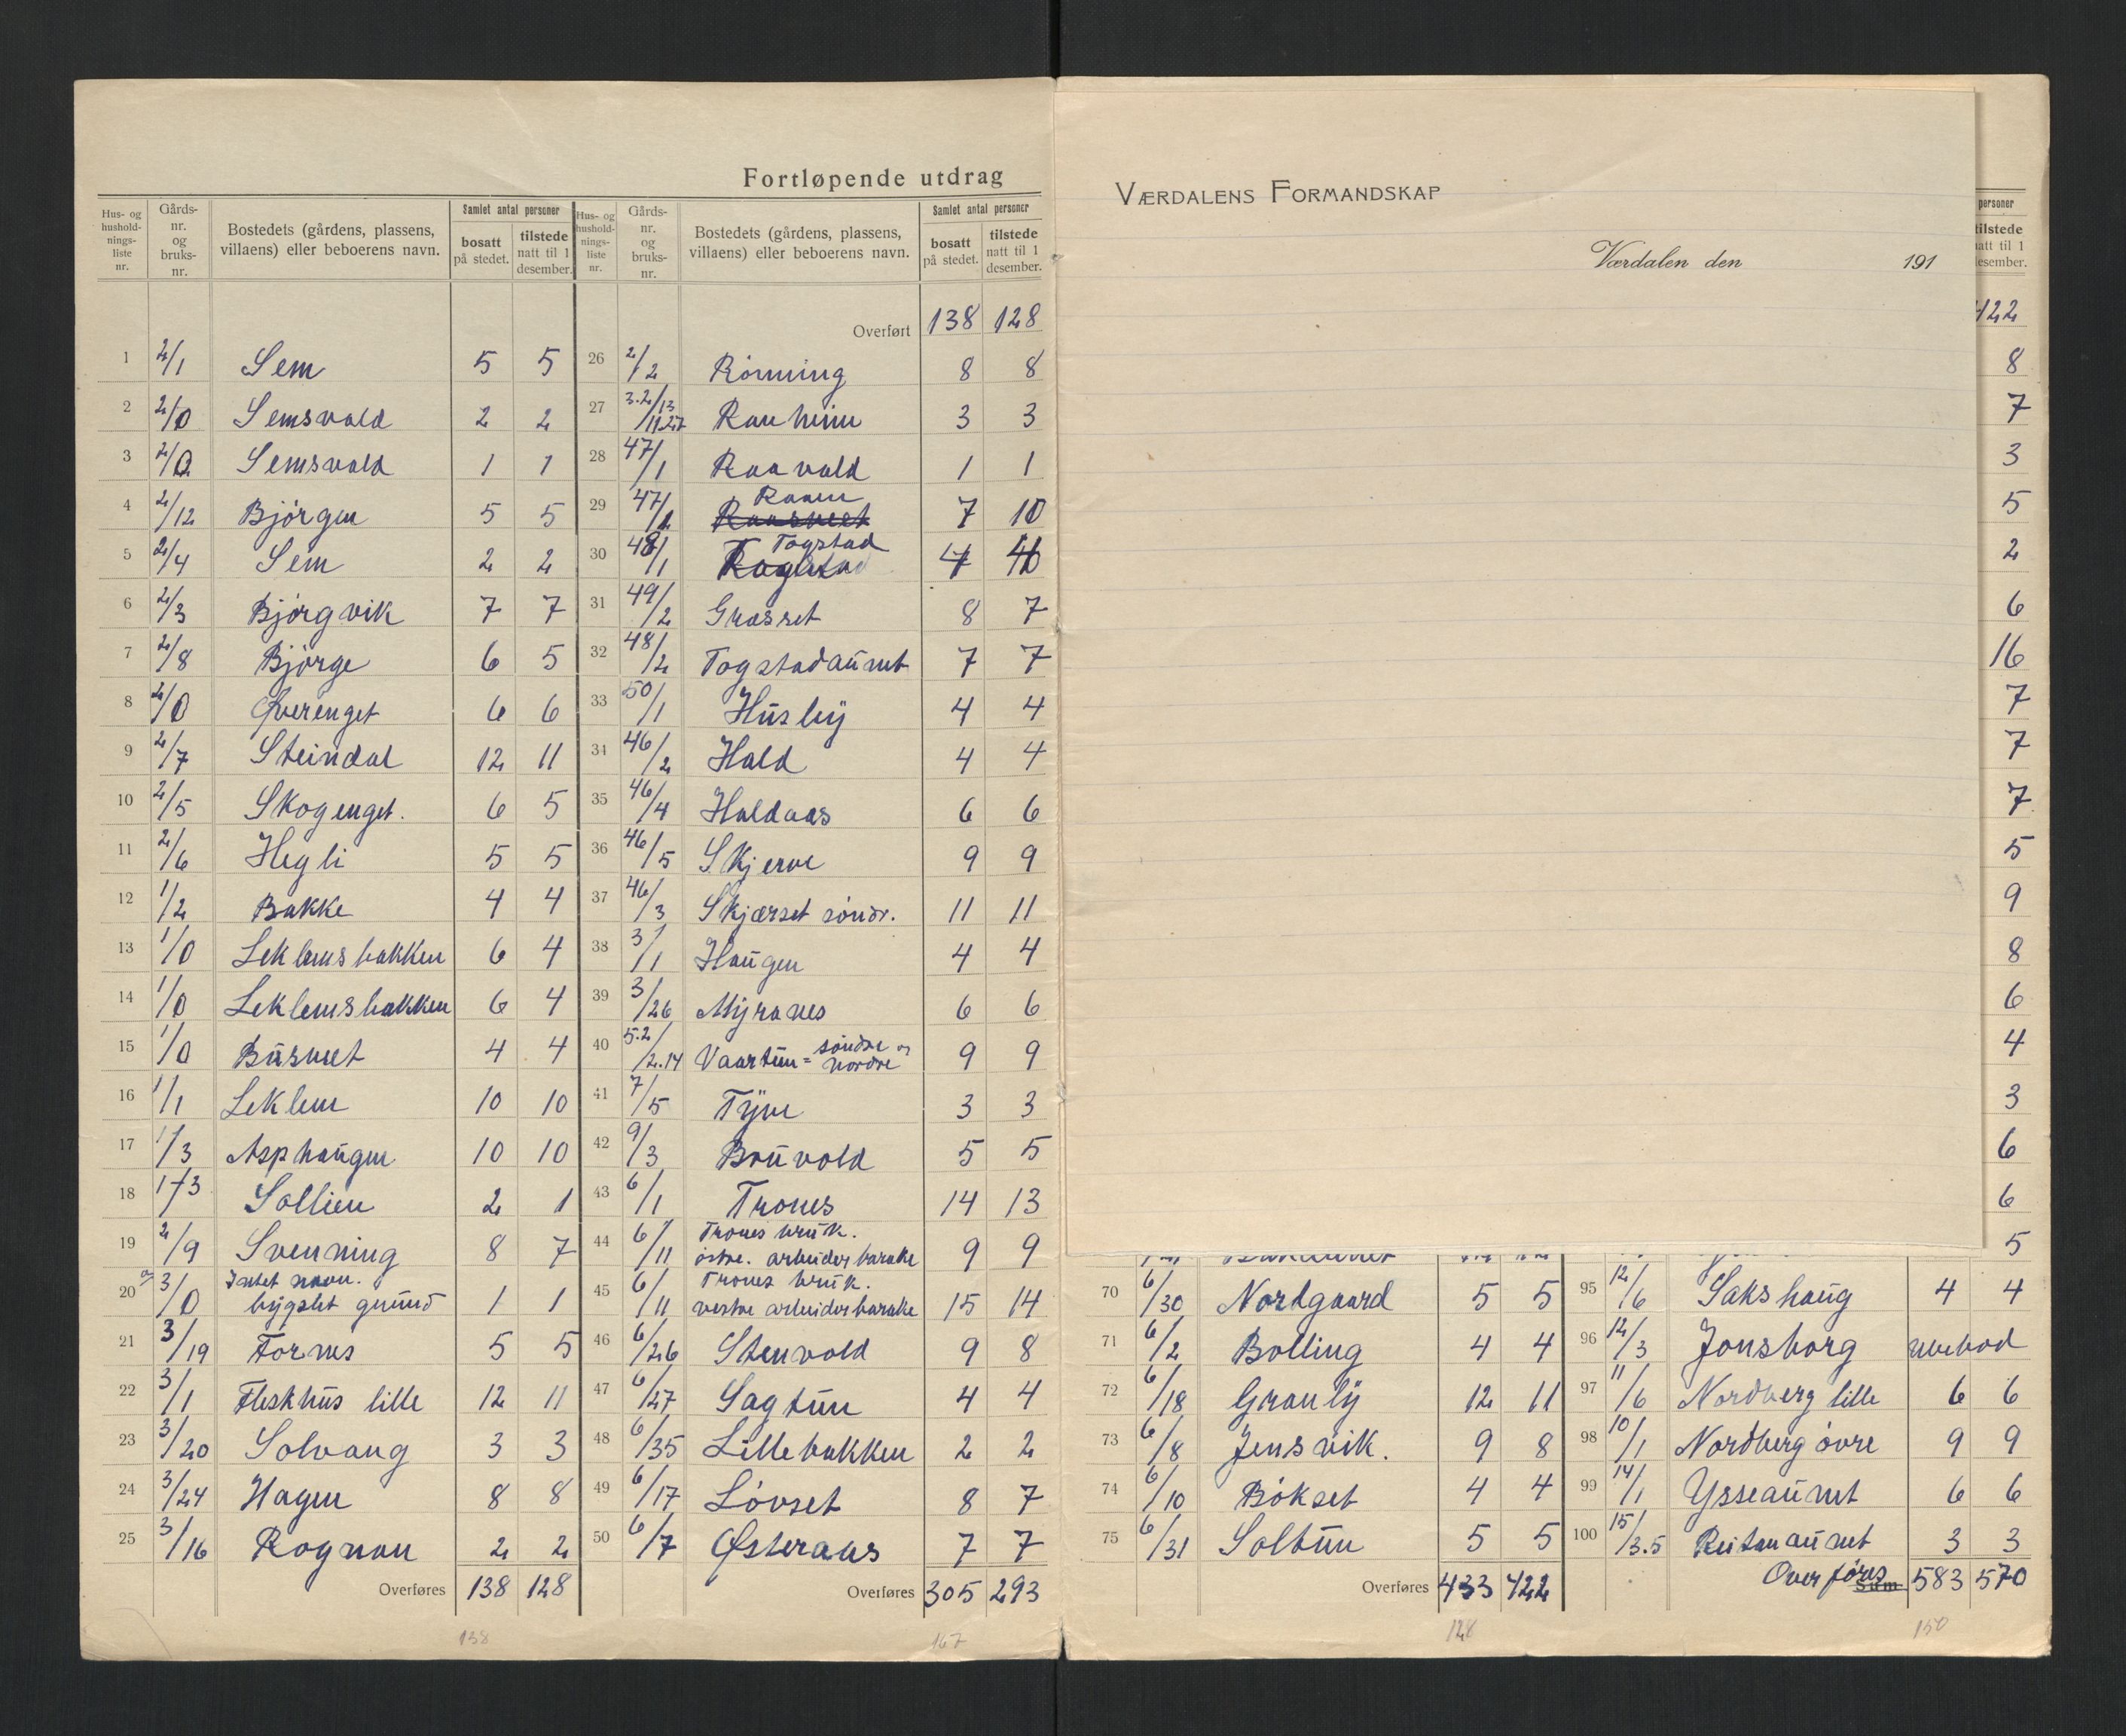 Fortløpende utdrag
Hus- og husholdnings-liste nr. | Gårds-nr. og bruks-nr. | Bostedets (gårdens, plassens, villaens) eller beboerens navn. | Samlet antal personer | bosatt på stedet. | tilstede natt til 1 desember.
1 2/1 Sem 5 5
2 2/0 Semsvald 2 2
3 2/0 Semsvald 1 1
4 2/12 Bjørgen 5 5
5 2/4 Sem 2 2
6 2/3 Bjørgvik 7 7
7 2/8 Bjørge 6 5
8 2/0 Øverenget 6 6
9 2/7 Steindal 12 11
10 2/5 Skogenget. 6 5
11 2/6 Hegli 5 5
12 1/2 Bakke 4 4
13 1/0 Leklemsbakken 6 4
14 1/0 Leklemsbakken 6 4
15 1/0 Busveet 4 4
16 1/1 Leklem 10 10
17 1/3 Asphaugen 10 10
18 1/3 Sollien 2 1
19 2/9 Svenning 8 7
20 3/0 Intet navn.
bygslet grund 1 1
21 3/19 Fornes 5 5
22 3/1 Fleskhus lille 12 11
23 3/20 Solvang 3 3
24 3/24 Hagen 8 8
25 3/16 Rognan 2 2
Overføres 138 128
138
Hus- og husholdnings-liste nr. | Gårds-nr. og bruks-nr. | Bostedets (gårdens, plassens, villaens) eller beboerens navn. | Samlet antal personer | bosatt på stedet. | tilstede natt til 1 desember.
Overført 138 128
26 2/2 Rønning 8 8
27 3.2/13 11.27 Rauheim 3 3
28 47/1 Raavald 1 1
29 47/1 Raaen 7 10
30 48/1 Togstad
31 49/2 Græsset 8 7
32 48/2 Togstadaunet 7 7
33 50/1 Husby 4 4
34 46/2 Hald 4 4
35 46/4 Haldaas 6 6
36 46/5 Skjerve 9 9
37 46/3 Skjærset søndr. 11 11
38 3/1 Haugen 4 4
39 3/26 Myranes 6 6
40 5.2/2.14 Vaartun = søndre og nordre 9 9
41 7/5 Tyve 3 3
42 9/3 Bouvold 5 5
43 6/1 Trones 14 13
44 6/11 Trones bruk.
østre. arbeiderbarake 9 9
45 6/11 Trones bruk.
vestre arbeiderbarake 15 14
46 6/26 Stenvold 9 8
47 6/27 Sagtun 4 4
48 6/35 Lillebakken 2 2
49 6/17 Løvset 8 7
50 6/7 Østeraas 7 7
Overføres 305 293
167
VÆRDALENS FORMANDSKAP
Værdalen den 191
70 6/30 Nordgaard 5 5
71 6/2 Bolling 4 4
72 6/18 Granly 12 11
73 6/8 Jensvik. 9 8
74 6/10 Bökset 4 4
75 6/31 Soltun 5 5
Overføres 433 422
128
personer
tilstede
natt til 1
desember.
422
8
7
3
5
2
6
16
7
7
7
5
9
8
6
4
3
6
6
5
95 12/6 Sakshaug 4 4
96 12/3 Jonsborg ubebod
97 11/6 Nordberg lille 6 6
98 10/1 Nordberg övre 9 9
99 14/1 Ysseaunet 6 6
100 15/3.5 Reitanaunet 3 3
Overføres Sum 583 570
150